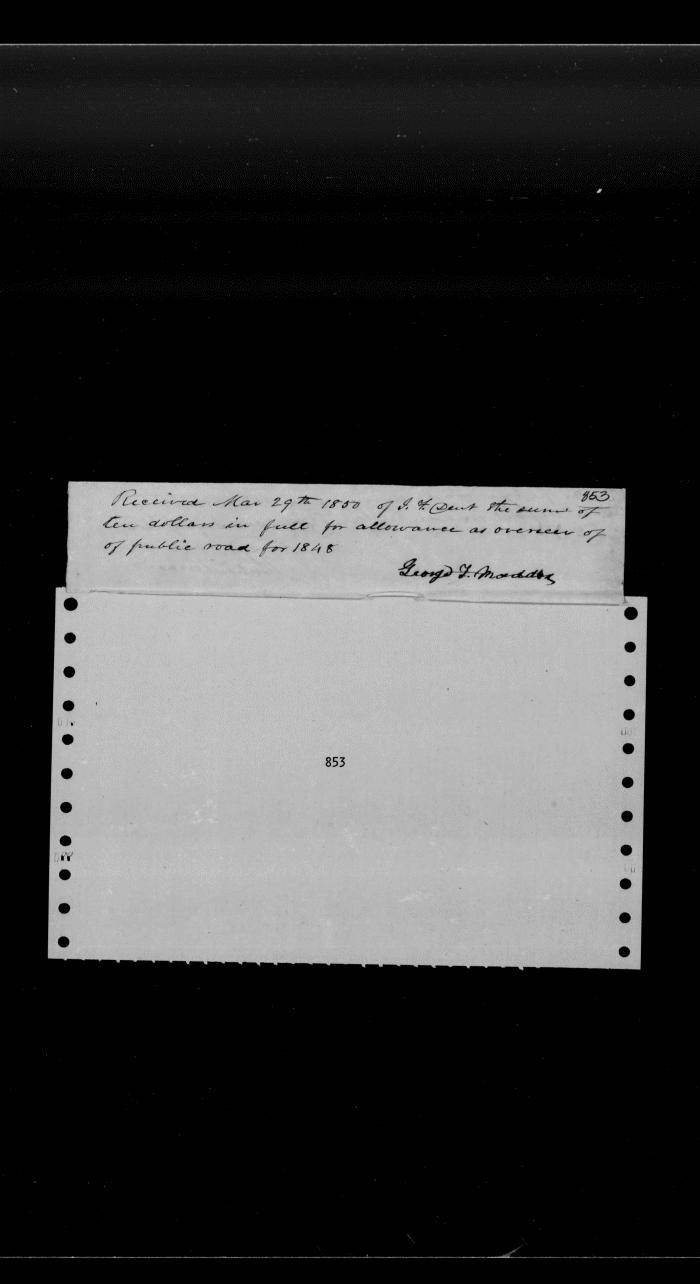 853
Received Mar 29th 1850 of J. F. Dent the sum of
ten dollars in full for allowance as overseer of
of public road for 1848
George F. Maddox
853